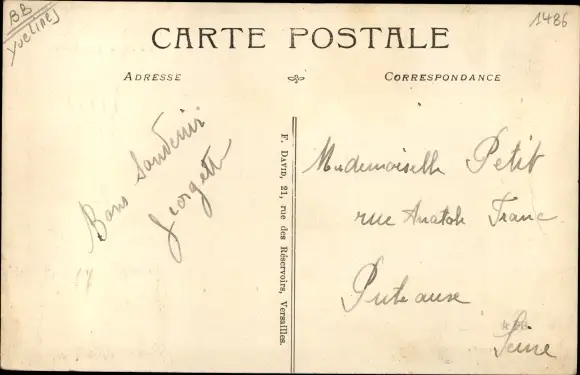 BB
Yvelines
1486
CARTE POSTALE
ADRESSE
CORRESPONDANCE
Bons Souvenir
Georgette
F. DAVID, 21, rue des Réservoirs, Versailles.
Mademoiselle Petit
rue Anatole Franc
Puteause
Seine